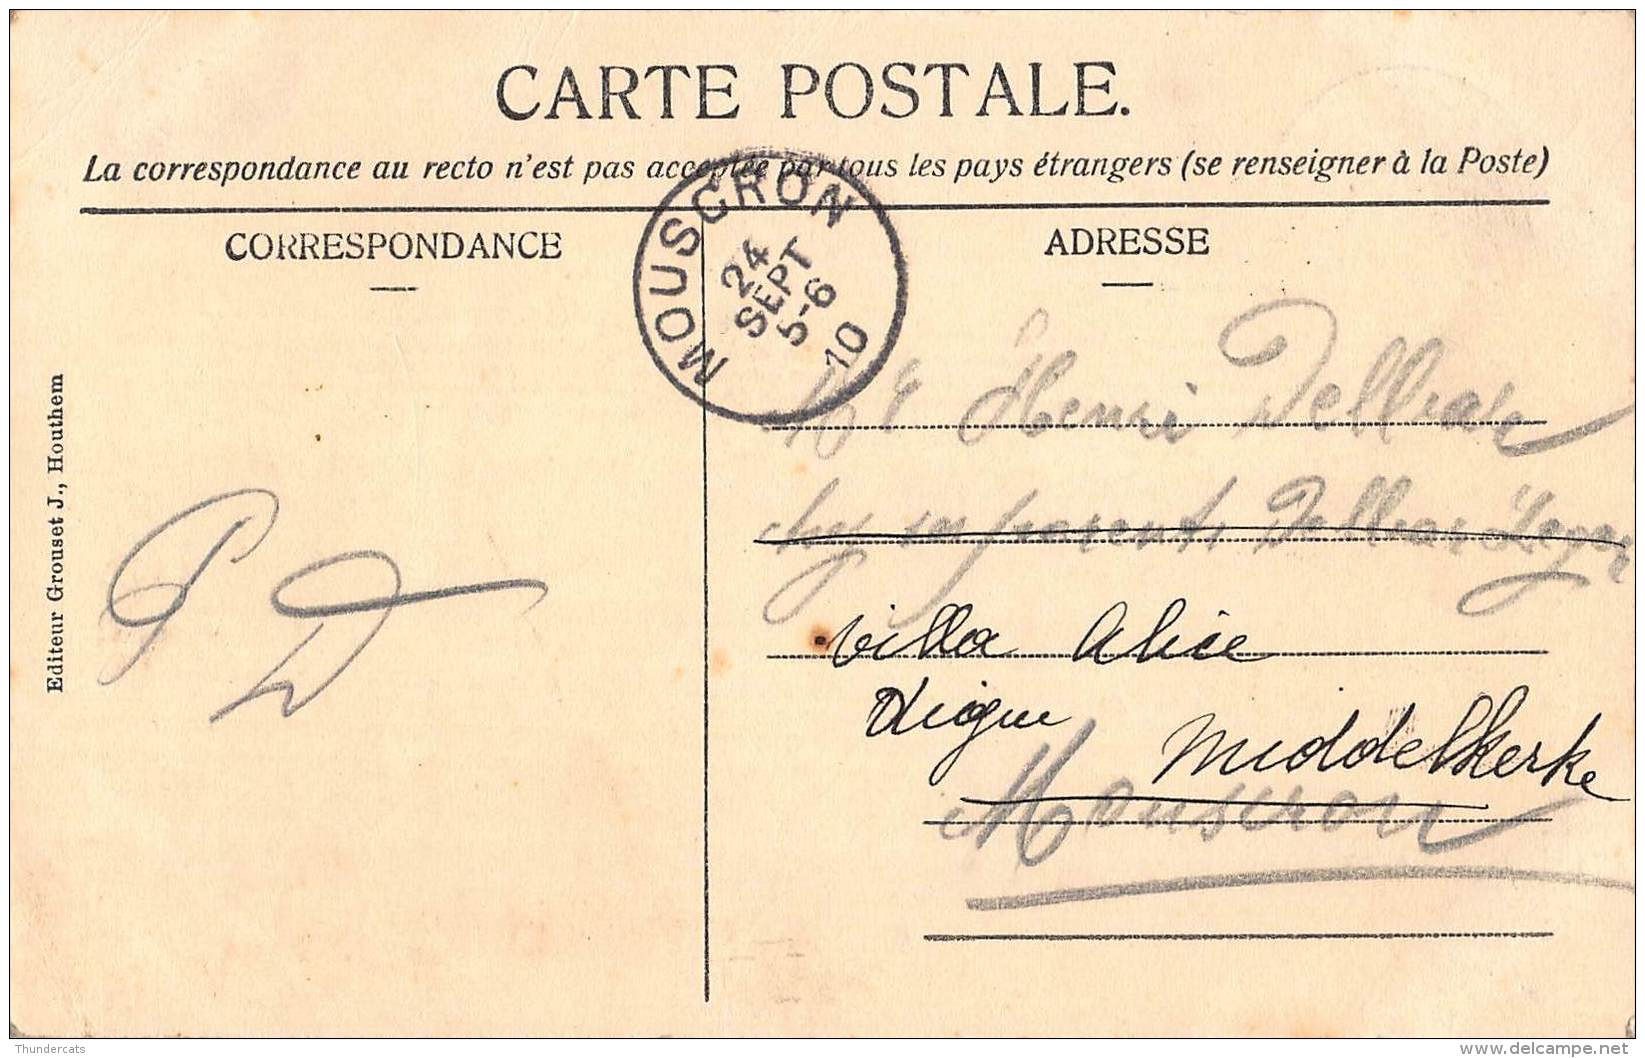 CARTE POSTALE.
La correspondance au recto n'est pas acceptée par tous les pays étrangers (se renseigner à la Poste)
CORRESPONDANCE
ADRESSE
MOUSCRON
24
SEPT
5-6
10
Editeur Grouset J., Houthem
Henri
parents
Villa Alice
Digue Middelkerke
Mouscron
PD
Thundercats
delcampe.net